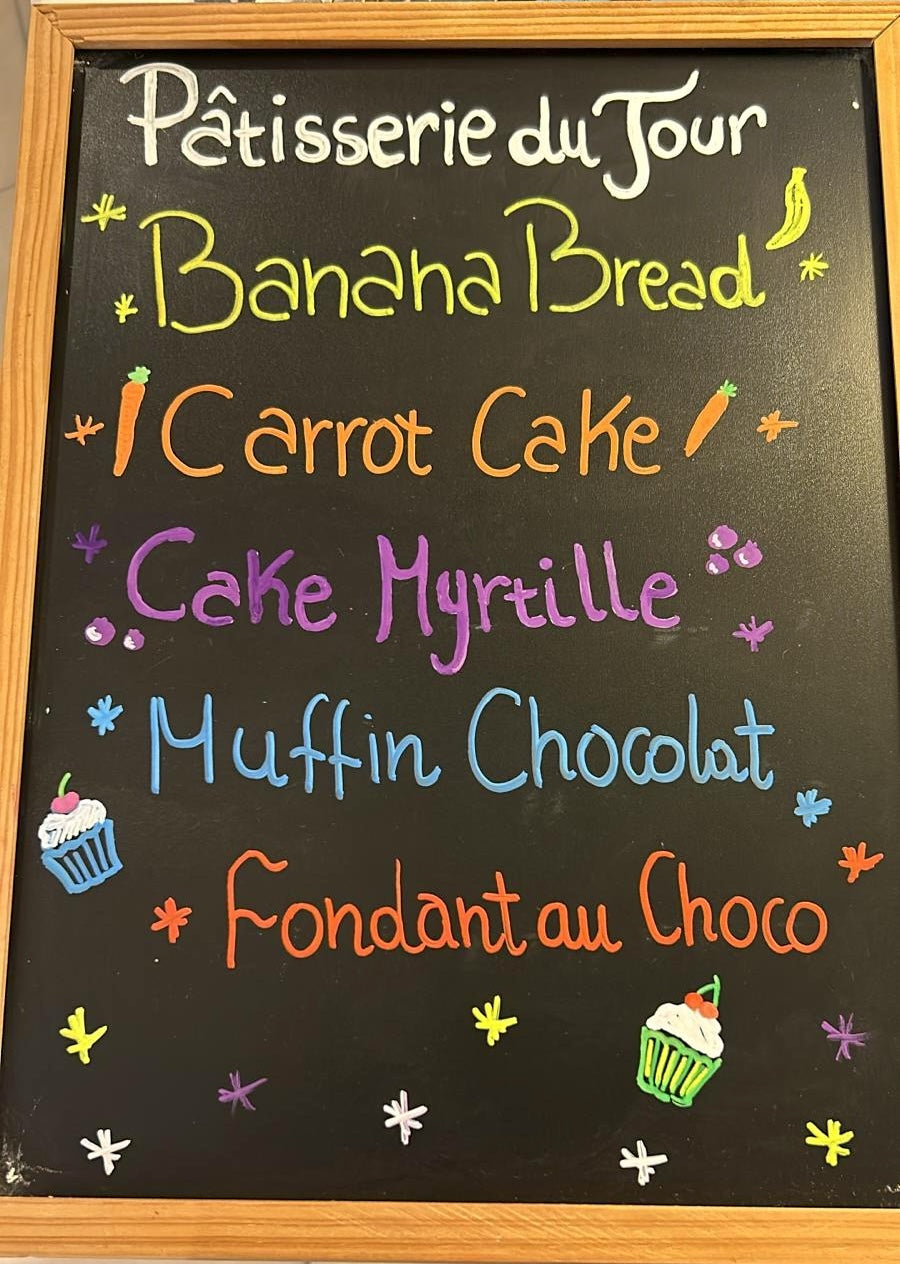 Pâtisserie du Jour
Banana Bread
Carrot Cake
Cake Myrtille
Muffin Chocolat
Fondant au Choco